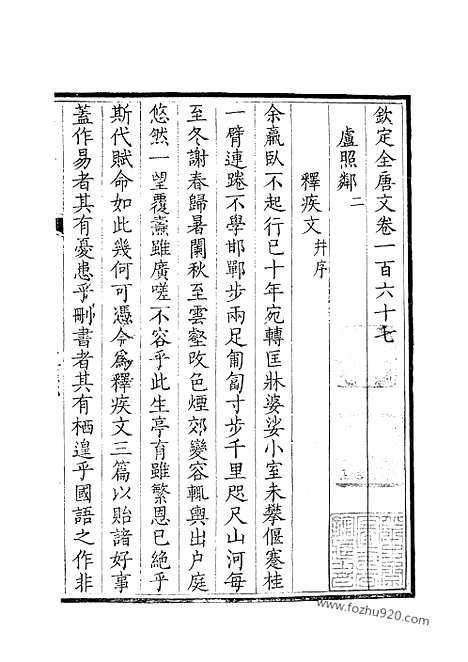 欽定全唐文卷一百六十七
盧照鄰 二
釋疾文 并序
余羸臥不起行已十年宛轉匡牀婆娑小室未攀偃蹇桂
一臂連踡不學邯鄲步兩足匍匐寸步千里咫尺山河每
至冬謝春歸暑闌秋至雲壑改色煙郊變容輒輿出户庭
悠然一望覆燾雖廣嗟不容乎此生亭育雖繁恩已絶乎
斯代賦命如此幾何可憑今爲釋疾文三篇以貽諸好事
蓋作易者其有憂患乎刪書者其有栖遑乎國語之作非
www.fozhu920.com